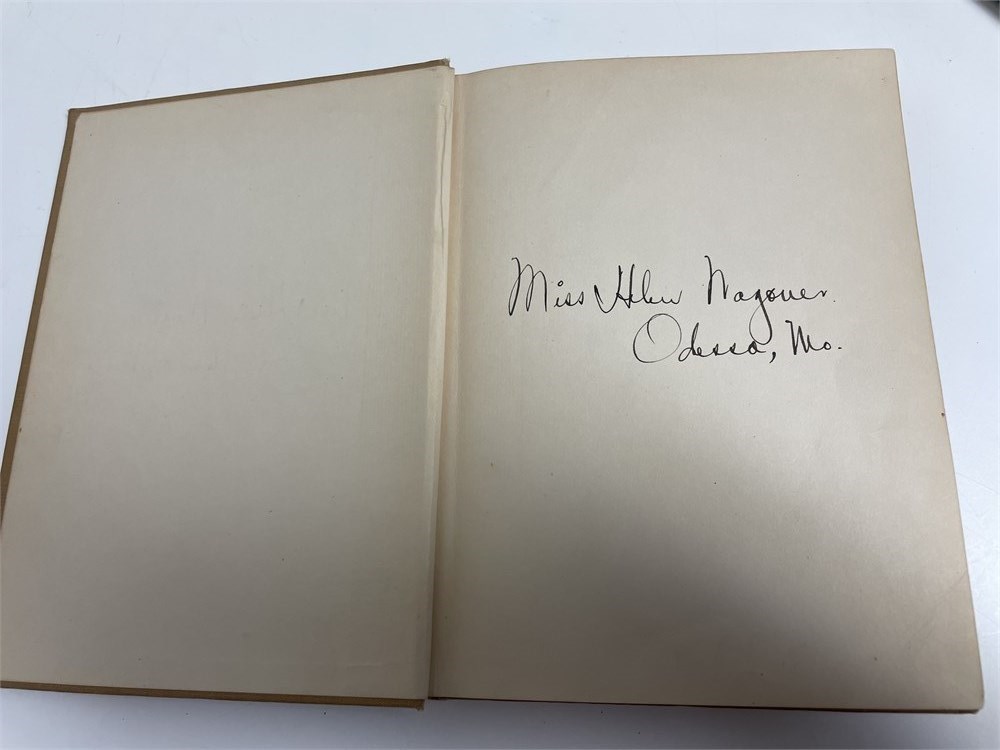 Miss Helen Wagoner.
Odessa, Mo.